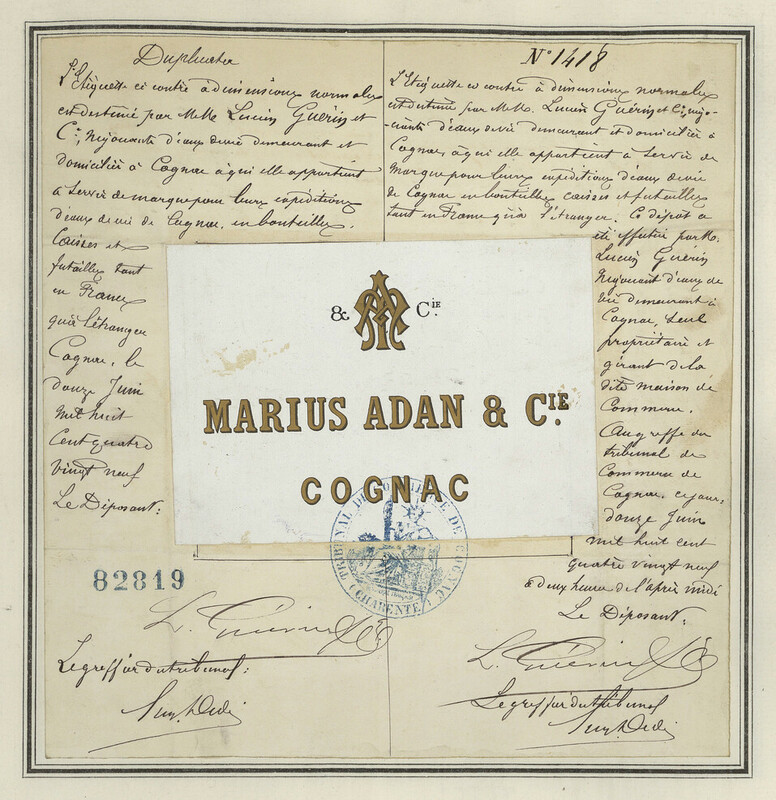 Duplicata
L'Etiquette ci contre à dimensions normales
est destinée par MMrs Lucien Guérin et
Cie, Négociants d'eaux de vie demeurant et
domiciliés à Cognac à qui elle appartient
à servir de marque pour leurs expéditions
d'eaux de vie de Cognac, en bouteilles,
Caisses et
futailles tant
en France
qu'à l'étranger
Cognac, le
douze Juin
mil huit
Cent quatre
Vingt neuf
Le Déposant:
82819
L. Guérin & Cie
Le greffier du tribunal:
N° 1418
L'Etiquette ci contre à dimensions normales
est destinée par MMrs. Lucien Guérin et Cie, négo-
ciants d'eaux de vie demeurant et domiciliés à
Cognac, à qui elle appartient à servir de
Marque pour leurs expéditions d'eaux de vie
de Cognac en bouteilles caisses et futailles
tant en France qu'à l'étranger. Ce dépôt a
été effectué par M.
Lucien Guérin
Négociant d'eaux de
vie demeurant à
Cognac, seul
propriétaire et
gérant de la
dite maison de
Commerce.
Au greffe du
tribunal de
Commerce de
Cognac, ce jour,
douze Juin
mil huit cent
quatre vingt neuf
à deux heures de l'après midi
Le Déposant:
L. Guérin & Cie
Le greffier du tribunal
& MA Cie.
MARIUS ADAN & CIE.
COGNAC
TRIBUNAL DE COMMERCE DE COGNAC
CHARENTE